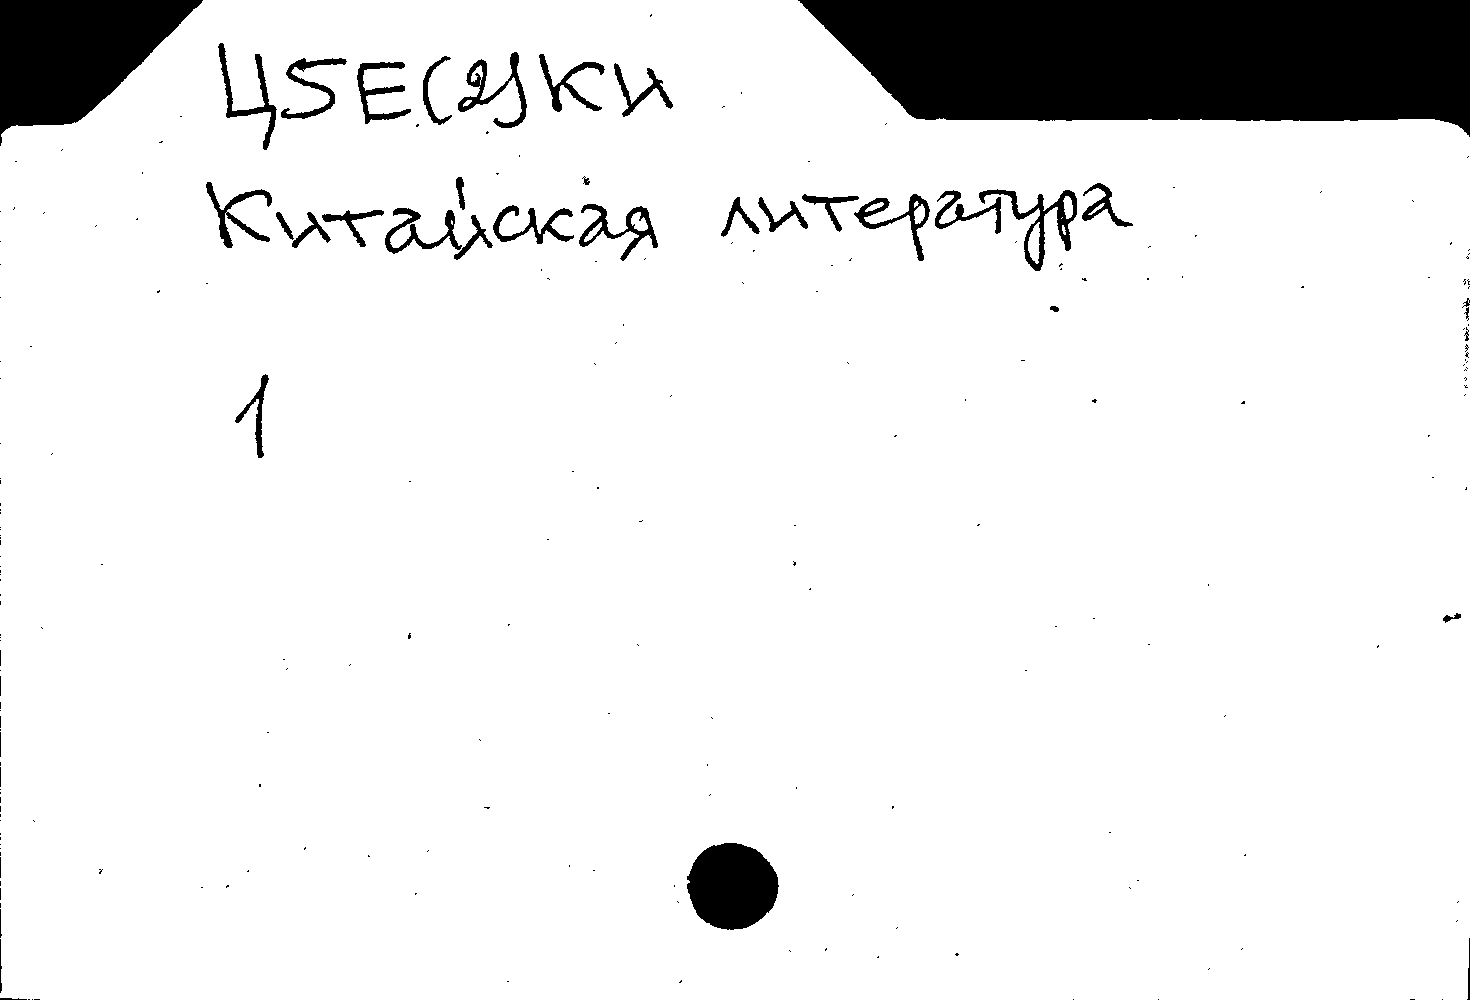 Ц5Е(2)Ки
Китайская литература
1